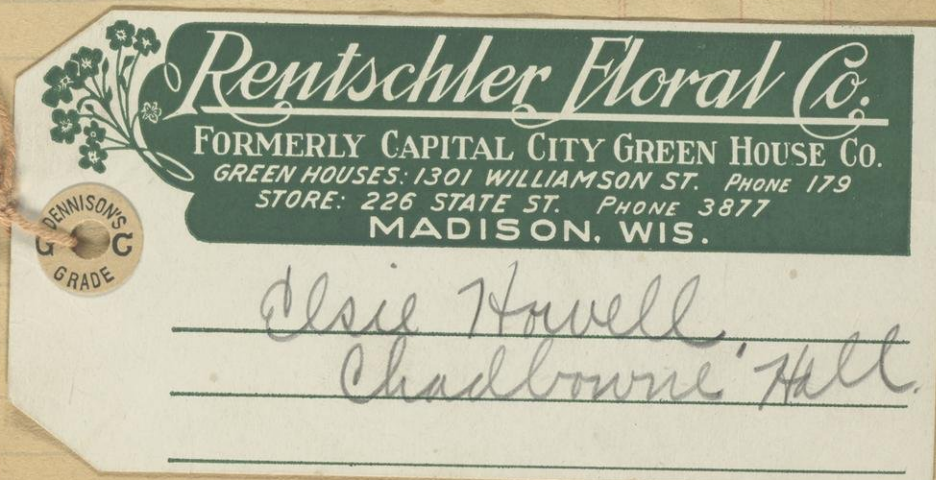 Rentschler Floral Co.
FORMERLY CAPITAL CITY GREEN HOUSE CO.
GREEN HOUSES: 1301 WILLIAMSON ST. PHONE 179
STORE: 226 STATE ST. PHONE 3877
MADISON, WIS.
DENNISON'S
G G
GRADE
Elsie Howell,
Chadbourne Hall.